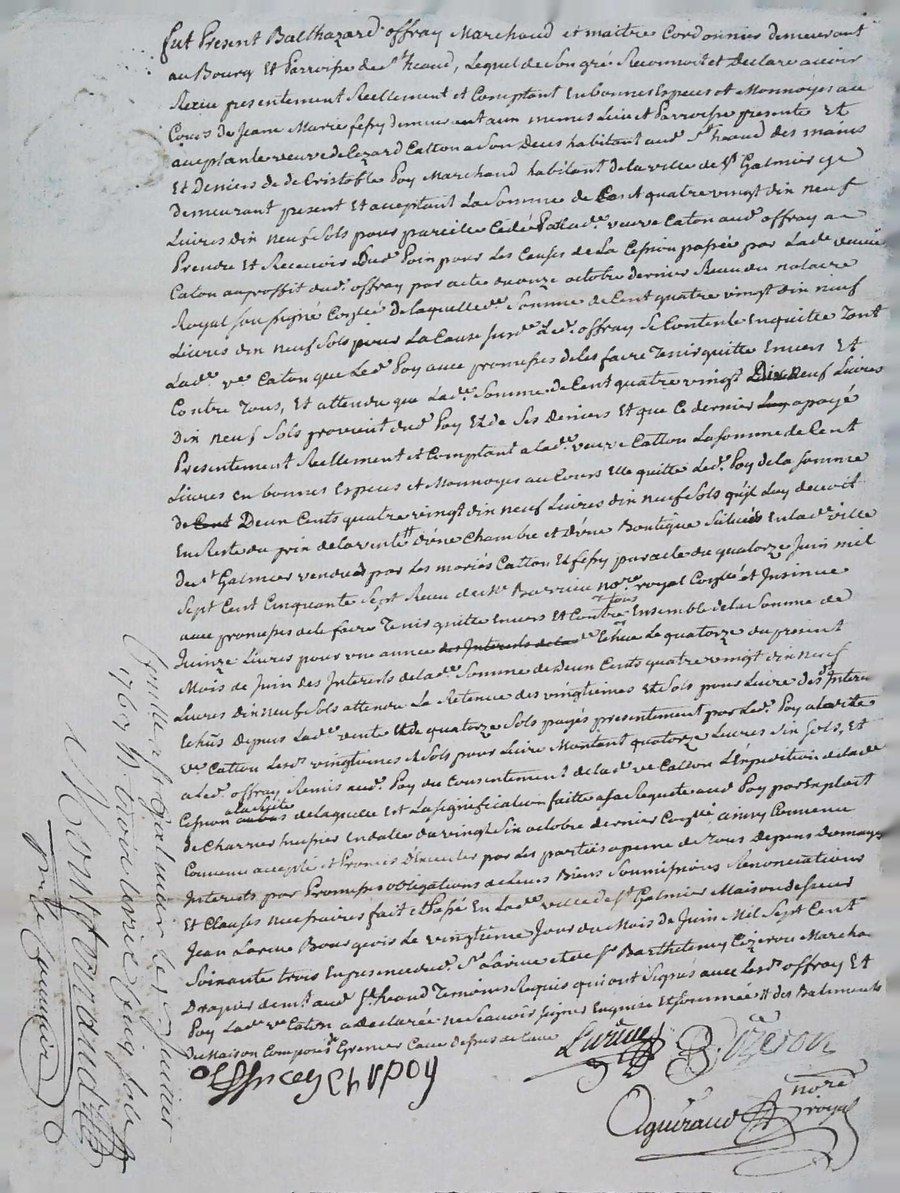 fut Present Balthazard offray Marchand et maitre Cordonnier demeurant
au Bourg et Parroisse de St heand, Lequel de Son gré Reconnoit et Declare avoir
Receu presentement Reellement et Comptant En bonnes Especes et Monnoyes au
Cours de Jeanne Marie fefry demeurant aux memes Lieu et Parroisse presente Et
acceptante veuve de Cezard Catton a Son Deces habitant aud. St heand des mains
Et Deniers de de Cristofle Poy Marchand habitant de la ville de St Galmier y
demeurant present Et acceptant La Somme de Cent quatre vingt dix neuf
Livres dix neuf Sols pour pareille Cedée Par Lade. veuve Caton aud. offray a
Prendre Et Recevoir Dud. Poix pour Les Causes de La Cession passée par Lade. veuve
Caton au proffit dud. offray par acte du onze octobre dernier Receu du notaire
Royal soussigné de laquelle de. Somme de Cent quatre vingt dix neuf
Livres dix neuf Sols pour La Cause Led. offray Se Contente En quitte Tant
Lade. ve. Caton que Led. Poy avec promesses de les faire Tenir quitte Envers Et
Contre Tous, Et attendu que Lade. Somme de Cent quatre vingt Dix Neuf Livres
Dix neuf Sols provient dud. Poy Et de Ses Deniers Et que Ce dernier a payé
Presentement Reellement et Comptant a Lade. veuve Catton La Somme de Cent
Livres en bonnes Especes et Monnoyes au Cours Elle quitte Led. Poy de la Somme
de Deux Cents quatre vingt dix neuf Livres dix neuf Sols qu'il Luy devoit
En Reste du prix de la vente d'une Chambre et d'une Boutique Situées En lade. ville
De St Galmier vendues par Les mariés Catton Et fefry par acte du quatorze Juin mil
Sept Cent Cinquante Sept Receu de Me Barrieu nore. royal et Insinué
avec promesses de le faire Tenir quitte Envers Et Contre tous Ensemble de la Somme de
Quinze Livres pour une année Echue Le quatorze du present
Mois de Juin des Interets de lade. Somme de Deux Cents quatre vingt dix neuf
Livres dix neuf Sols attendu La Retenue des vingtiemes Et Sols pour Livre des Interets
Echus Depuis Lade. vente Et de quatorze Sols payés presentement par Led. Poy a ladite
ve. Catton Lesd. vingtiemes Et Sols pour Livre Montant quatorze Livres Six Sols, Et
a Led. offray Remis aud. Poy du Consentement de lade. ve Catton L'Expedition de lade.
Cession de laquelle Est La Signification faitte a Sa Requeste aud. Poy par Exploit
de Charrier huissier En datte du vingt Six octobre dernier ainsy Convenu
Convenu accepté Et Promis D'Executer par les parties a peine de Tous Depens Domages
Interets par Promesses obligations de Leurs Biens Soumissions Renonciations
Et Clauses necessaires fait et Passé En Lade. ville de St Galmier Maison de Sieur
Jean Larue Bourgeois Le vingtieme Jour du Mois de Juin Mil Sept Cent
Soixante trois En presence dud. Sr. Larue et de Sr. Barthelemy Cozeron Marchand
Drapier demt. aud. St heand Temoins Requis qui ont Signés avec Lesd. offray Et
Poy Lade. ve Caton a declarée ne Scavoir Signer Enquise Et Sommée
de Maison
offrey Ch poy
Larue
B. Cozeron
Aguiraud nore. royal
Controllé a St galmier le
1763 livre cinq sols
Montrandit